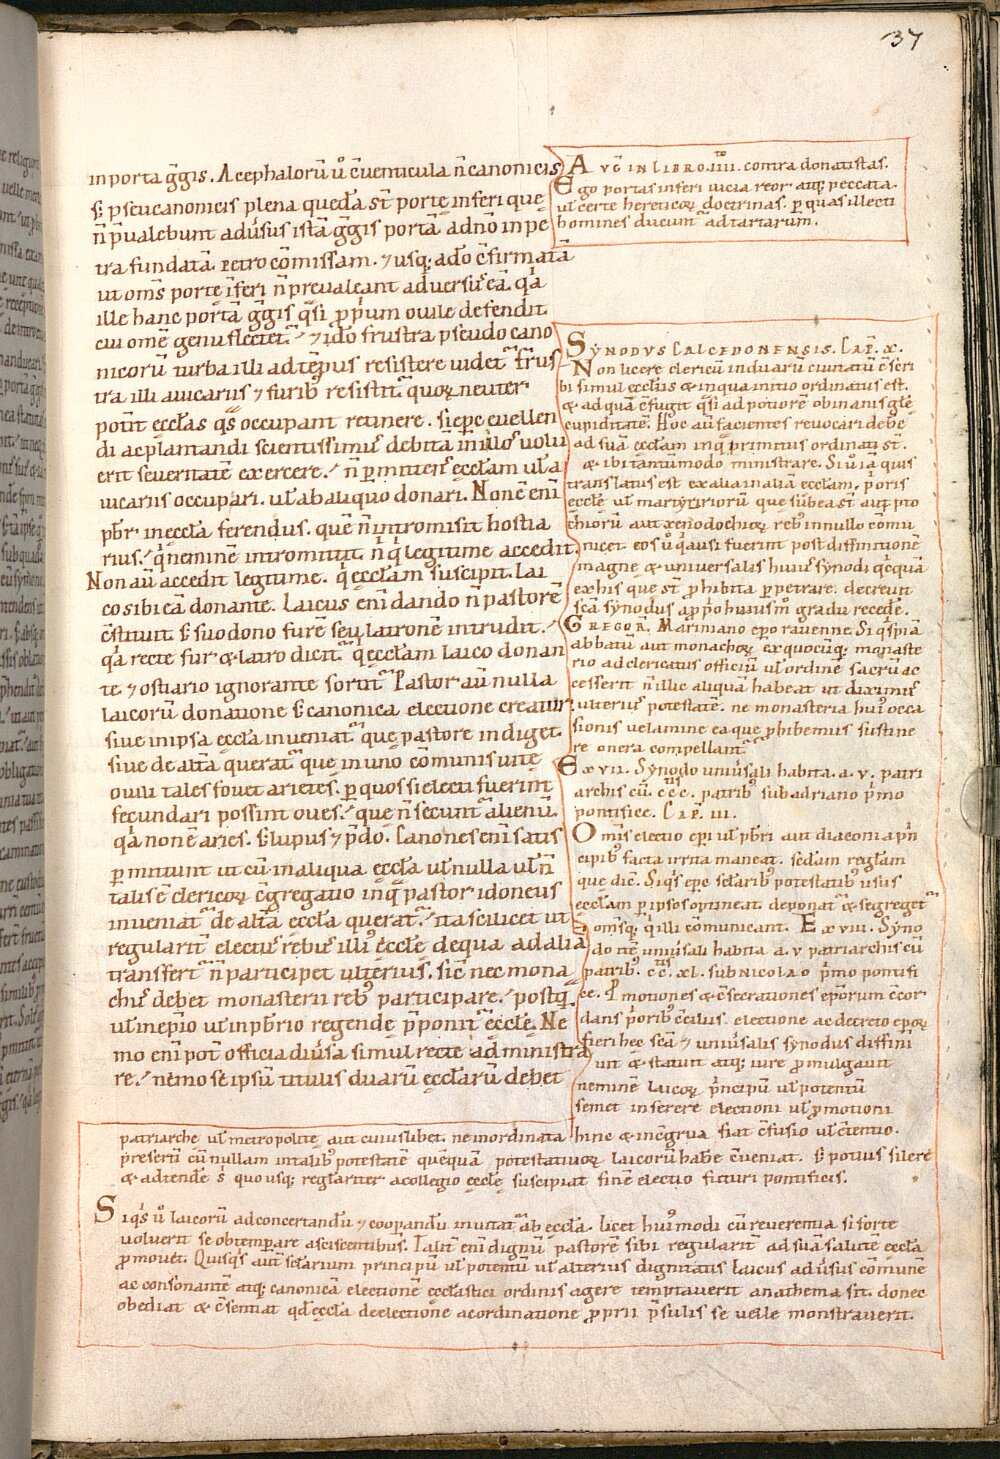 37
in porta ḡḡis. Acephalorū u̾ c̄uenticula n̄ canonicis
s; pseucanonicis plena quedā st̄ porte inferi que
n̄ p̄ualebunt adu̾sus istā ḡḡis portā adn̄o in pe
tra fundatā petro cōmissam. ⁊ usq; ad̄o c̄firmatā
ut om̄s porte īferi n̄ preualeant aduersus eā. qa
ille hanc portā ḡḡis qͣsi ꝓpriū ouile defendit
cui omē genu flectet᷑. ⁊ id̄o frustra pseudo cano
nicorū turba illi ad tēpus resistere uidet᷑. frus
tra illi auicarus ⁊ furib; resistit᷑ quoꝝ neuter
potit eccl̄as qͣs occupant retinere. siepe euellen
di ac plantandi scientissimus debita in illos uolu
erit seueritatē exercere. n̄ ꝑmittens eccl̄am ul̄ a
uicarus occupari. ul̄ ab aliquo donari. Non ē enī
pbr̄ in eccl̄a ferendus. quē n̄ intromisit hostia
rius. q̄ neminē intromittit n̄ q̄ legitime accedit.
Non aū accedit legitime. q̄ eccl̄am suscipit. lai
co sibi eā donante. Laicus enī dando n̄ pastorē
c̄stituit. s; suo dono furē seu latronē intrudit.
qa recte fur & latro dicit᷑ q̄ eccl̄am laico donan
te. ⁊ ostiario ignorante sortit᷑. Pastor aū nulla
laicorū donatione s; canonica electione creatur.
siue in ipsa eccl̄a inueniat᷑. que pastore indiget.
siue de alt̄a querat᷑ que in uno cōmunis unie
ouili tales fouet arietes. ꝑ quos si electi fuerint
fecundari possint oues. que n̄ secunt᷑ alienū.
qa non ē aries. s; lupus ⁊ p̄do. Canones enī satis
ꝑmittunt ut cū in aliqua eccl̄a ul̄ nulla ul̄ n̄
talis ē clericoꝝ c̄gregatio in q̄ pastor idoneus
inueniat᷑. de alt̄a eccl̄a querat᷑. ita scilicet ut
regularit̄ electus rebus illius eccl̄e de qua ad aliā
transfert᷑ n̄ participet ulterius. sic̄ nec mona
chus debet monasterii reb; participare. postq̄
ul̄ in ep̄io ul̄ in pbr̄io regende p̄ponit᷑ eccl̄e. Ne
mo enī pot̄ officia diu̾sa simul recte administra
re. nemo se ipsū titulis duarū eccl̄arū debet
AVḠ IN LIBRO .IIII. contra donatistas.
Ego portas inferi uicia reor atq; peccata.
ul̄ certe hereticoꝝ doctrinas. ꝑ quas illecti
homines ducunt᷑ ad tartarum.
SYNODVS CALCEDONENSIS. CAP̄. X.
Non licere clericū in duarū ciuitatū c̄seri
bi simul eccl̄iis & in qua initio ordinatus est.
& ad quā c̄fugit qͣsi ad potiorē ob inanis gl̄e
cupiditatē. Hoc aū facientes reuocari debe
ad suā eccl̄am in q̄ primitus ordinati st̄.
& ibi tantūmodo ministrare. Si u̾ iā quis
translatus est ex alia in aliā eccl̄am. p̄oris
eccl̄e ul̄ martyriorū que sub ea st̄ aut pto
chiorū aut xenodochioꝝ reb; in nullo comu
nicet. eos u̾ q̄ ausi fuerint post diffinitionē
magne & uniuersalis huius synodi qc̄quā
ex his que st̄ ꝓhibita ꝑpetrare. decreuit
sc̄a synodus a ꝓp̄o huiusm̄ gradu recede.
GREGOR̄. Mariniano ep̄o rauenne. Si qͥspiā
abbatū aut monachoꝝ ex quocūq; monaste
rio ad clericatus officiū ul̄ ordinē sacrū ac
cesserit n̄ illic aliquā habeat ut diximus
ulterius potestatē. ne monasteria huius occa
sionis uelamine ea que ꝓhibemus sustine
re onera compellant᷑.
Ex VII. Synodo uniu̾sali habita. a. v. patri
archis cū. c̄c̄c̄. patrib; sub adriano p̄mo
pontifice. CAP̄. III.
Omīs electio ep̄i ul̄ pbr̄i aut diaconi a p̄n
cipib; facta irrita maneat. sedām regl̄am
que dic̄. Si qͥs ep̄c sc̄larib; potestatib; usus
eccl̄am ꝑ ipsos optineat. deponat᷑ & segregēt᷑
omīsq; q̄ illi cōmunicant. Ex VIII. Syno
do itē uniu̾sali habita. a. v patriarchis cū
patrib;. c̄c̄. xl. sub NICOLAO p̄mo pontifi
ce. Pmotiones & c̄secrationes ep̄orum c̄cor
dans p̄orib; c̄ciliis. electione ac decreto ep̄oꝝ
fieri hec sc̄a ⁊ uniu̾salis synodus diffini
uit & statuit atq; iure ꝓmulgauit
neminē laicoꝝ p̄ncipū ul̄ potentū
semet inserere electioni ul̄ ꝓmotioni
patriarche ul̄ metropolite aut cuiuslibet. ne inordinata hinc & inc̄grua fiat c̄fusio ul̄ c̄tentio.
p̄sertī cū nullam in talib; potestatē quēquā potestatiuoꝝ laicorū hab̄e c̄ueniat. s; potius silere
& adtendē s̄ quo usq; regl̄ariter a collegio eccl̄e suscipiat finē electio futuri pontificis.
Si qͥs u̾ laicorū ad concertandū ⁊ coopandū inuitat᷑ ab eccl̄a. licet huiusmodi cū reuerentia si forte
uoluerit se obtemꝑare asciscentibus. Talit̄ enī dignū pastorē sibi regularit̄ ad suā salutē eccl̄a
ꝓmouet. Quisqͥs aūt sc̄larium principū ul̄ potentū ul̄ alterius dignitatis laicus adu̾sus cōmunē
ac consonantē atq; canonicā electionē eccl̄astici ordinis agere temptauerit anathema sit. donec
obediat & c̄sentiat qd̄ eccl̄a de electione ac ordinatione ꝓprii p̄sulis se uelle monstrauerit.